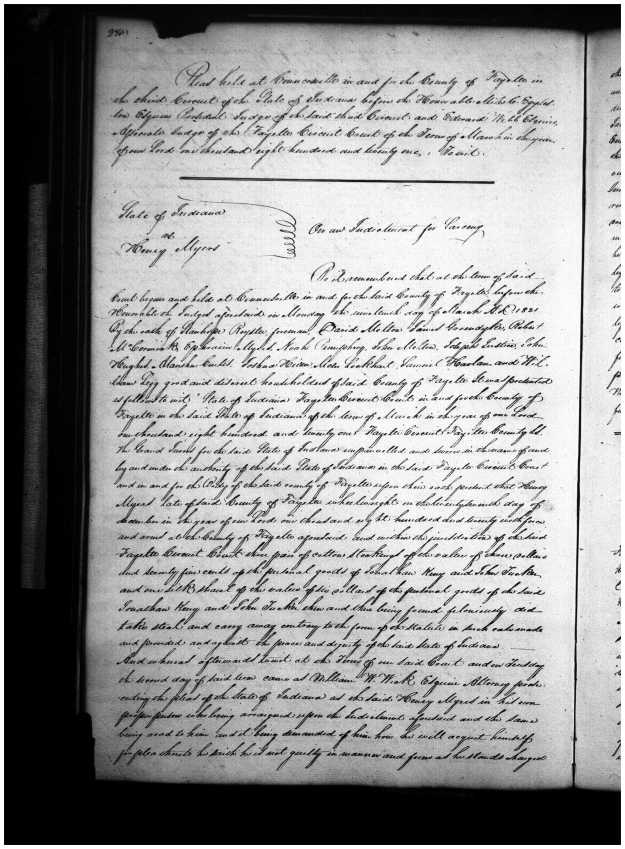 Pleas held at Connersville in and for the County of Fayette in
the third Circuit of the State of Indiana before the Honorable Miles C. Eggles-
ton Esquire President Judge of the said third Circuit and Edward Webb Esquire
Associate Judge of the Fayette Circuit Court of the Term of March in the year
of our Lord one thousand eight hundred and twenty one. To wit.
State of Indiana
vs
Henry Myers
On an Indictment for Larceny
Be it remembered that at the term of said
Court begun and held at Connersville in and for the said County of Fayette before the
Honorable the Judges aforesaid on Monday the day of March AD 1821
By the oath of Stanhope Royster foreman, David Melton James Robert
McCormick Ephraim Myers Noah John Melton John
Hughes Joshua Lockhart, Samuel Harlan and Wil-
liam Legg good and discreet householders of said County of Fayette it was presented
as follows to wit, "State of Indiana Fayette Circuit Court in and for the County of
Fayette in the said State of Indiana of the term of March in the year of our Lord
one thousand eight hundred and twenty one Fayette Circuit, Fayette County ss.
The Grand Jurors for the said State of Indiana empannelled and sworn in the name of and
by and under the authority of the said State of Indiana in the said Fayette Circuit Court
and in and for the Body of the said county of Fayette upon their oath present that Henry
Myers late of said County of Fayette on the day of
december in the year of our Lord one thousand eight hundred and twenty with force
and arms at the County of Fayette aforesaid and within the jurisdiction of the said
Fayette Circuit Court three pair of cotton stockings of the value of three dollars
and seventy five cents of the personal goods of Jonathan Keny and John Tucker
and one silk shawl of the value of six dollars of the personal goods of the said
Jonathan Keny and John Tucker then and there being found feloniously did
take steal and carry away contrary to the form of the statute in such case made
and provided and against the peace and dignity of the said State of Indiana
And whereas afterwards to wit at the Term of our said Court and on Tuesday
the second day of said term came as William W. Wick Esquire Attorney prose-
cuting the pleas of the State of Indiana as the said Henry Myers in his own
proper person who being arraigned upon the Indictment aforesaid and the same
being read to him and it being demanded of him how he will acquit himself
for plea thereto he saith he is not guilty in manner and form as he stands charged